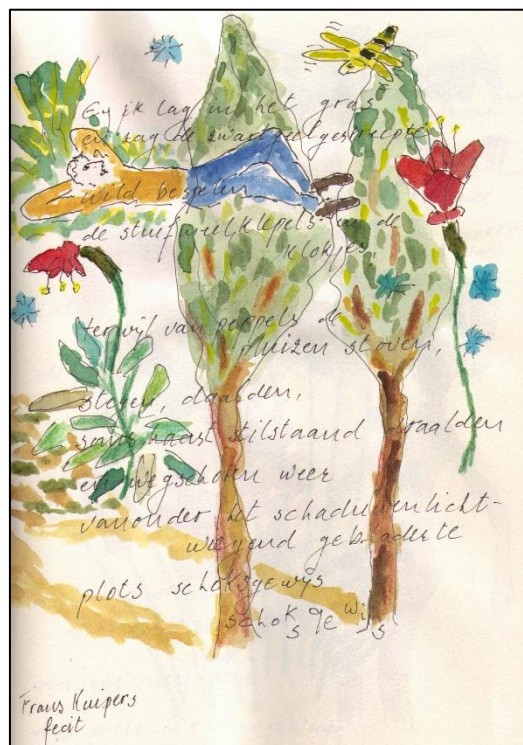 En ik lag in het gras
en zag de zwartgeelgestreepte
wild bespelen
de stuifmeelklepels in de
klokjes,
terwijl van peppels de
pluizen stoven,
stegen, daalden,
soms haast stilstaand draalden
en wegschoten weer
vanonder het schaduwenlicht-
wiegend gebladerte
plots schoksgewijs
schoksgewijs
Frans Kuipers
fecit